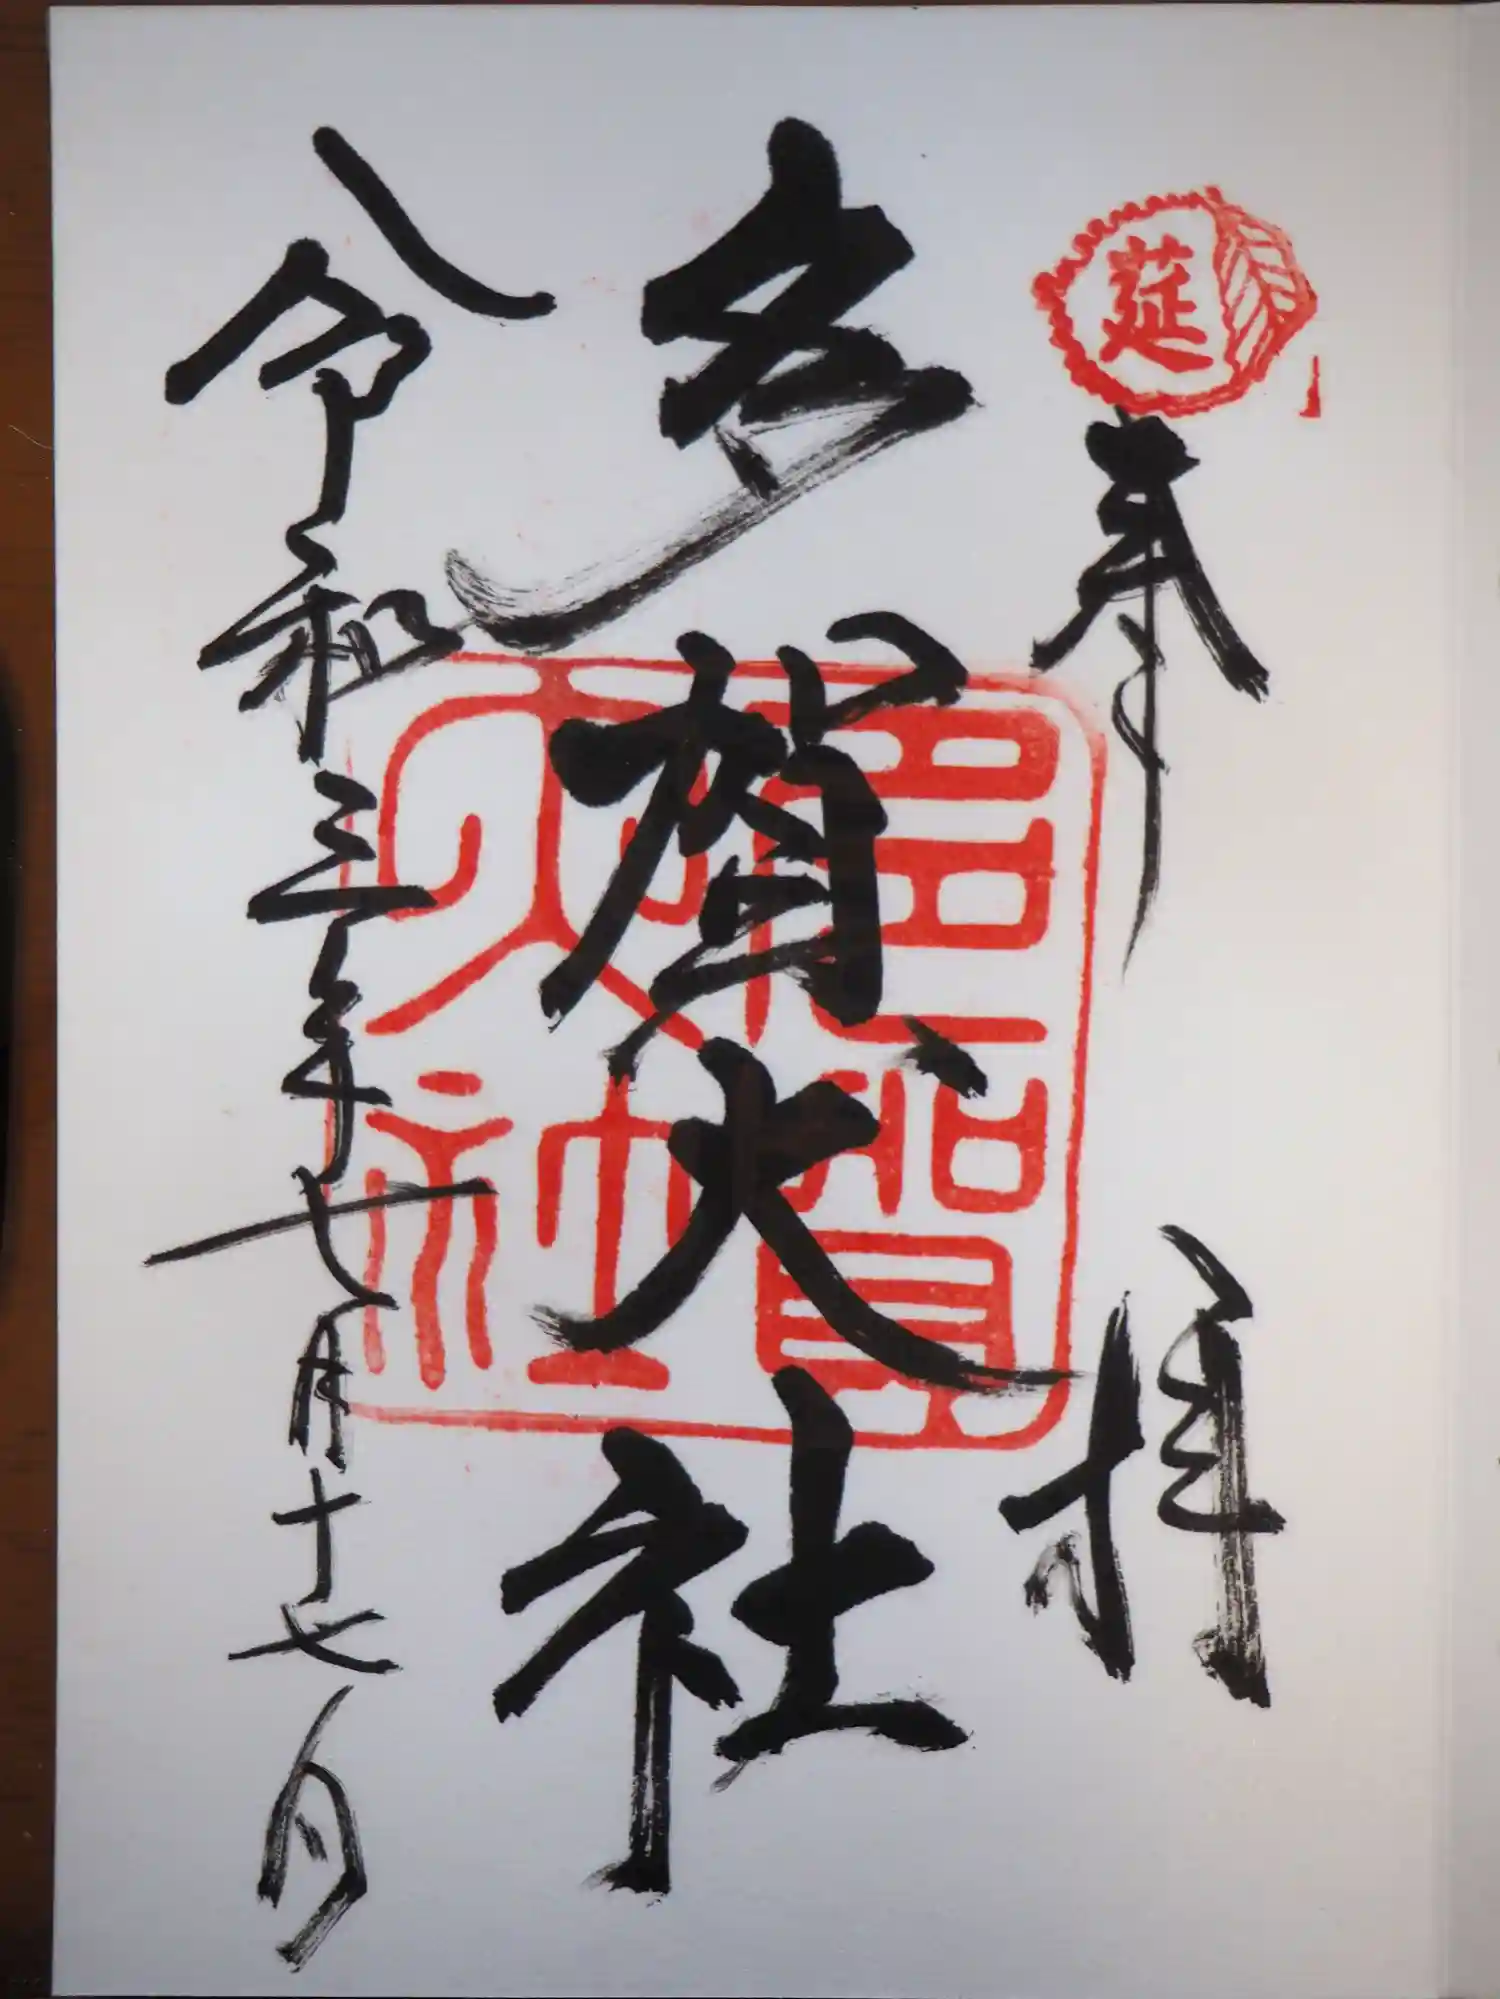 莚
奉拝
多賀大社
令和三年七月十七日
多賀
大社